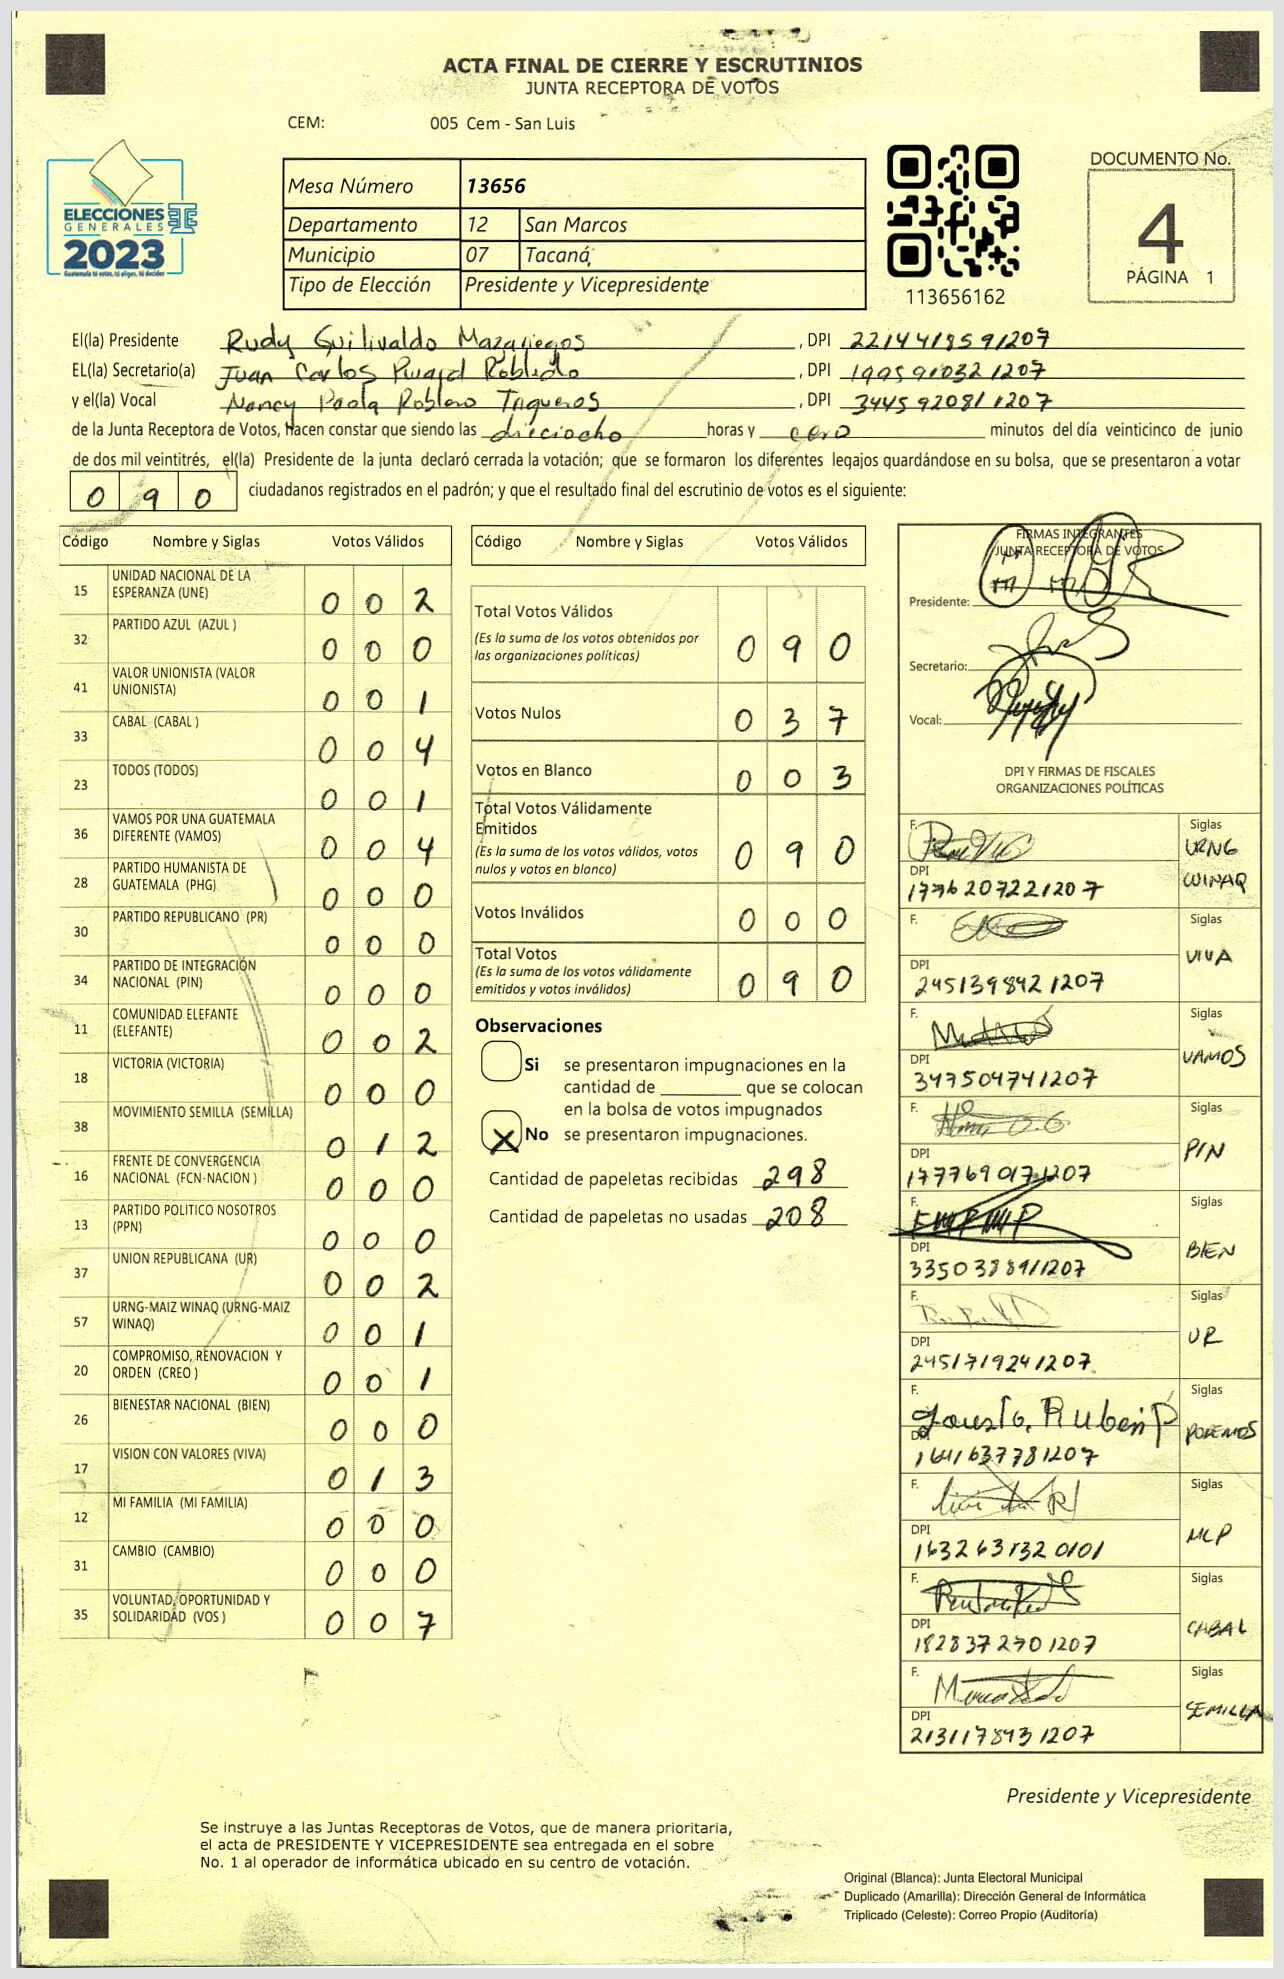 ACTA FINAL DE CIERRE Y ESCRUTINIOS
JUNTA RECEPTORA DE VOTOS
CEM: 005 Cem - San Luis
ELECCIONES
GENERALES
2023
Guatemala tú votas, tú eliges, tú decides
Mesa Número 13656
Departamento 12 San Marcos
Municipio 07 Tacaná
Tipo de Elección Presidente y Vicepresidente
113656162
DOCUMENTO No.
4
PÁGINA 1
El(la) Presidente Rudy Guilivaldo Mazariegos, DPI 2214418591207
EL(la) Secretario(a) Juan Carlos Robledo, DPI 1995910321207
y el(la) Vocal Nancy Paola Roblero Trigueros, DPI 3445920811207
de la Junta Receptora de Votos, hacen constar que siendo las dieciocho horas y cero minutos del día veinticinco de junio
de dos mil veintitrés, el(la) Presidente de la junta declaró cerrada la votación; que se formaron los diferentes legajos quardándose en su bolsa, que se presentaron a votar
090 ciudadanos registrados en el padrón; y que el resultado final del escrutinio de votos es el siguiente:
Código Nombre y Siglas Votos Válidos
15 UNIDAD NACIONAL DE LA
ESPERANZA (UNE) 0 0 2
32 PARTIDO AZUL (AZUL ) 0 0 0
41 VALOR UNIONISTA (VALOR
UNIONISTA) 0 0 1
33 CABAL (CABAL ) 0 0 4
23 TODOS (TODOS) 0 0 1
36 VAMOS POR UNA GUATEMALA
DIFERENTE (VAMOS) 0 0 4
28 PARTIDO HUMANISTA DE
GUATEMALA (PHG) 0 0 0
30 PARTIDO REPUBLICANO (PR) 0 0 0
34 PARTIDO DE INTEGRACIÓN
NACIONAL (PIN) 0 0 0
11 COMUNIDAD ELEFANTE
(ELEFANTE) 0 0 2
18 VICTORIA (VICTORIA) 0 0 0
38 MOVIMIENTO SEMILLA (SEMILLA) 0 1 2
16 FRENTE DE CONVERGENCIA
NACIONAL (FCN-NACION ) 0 0 0
13 PARTIDO POLITICO NOSOTROS
(PPN) 0 0 0
37 UNION REPUBLICANA (UR) 0 0 2
57 URNG-MAIZ WINAQ (URNG-MAIZ
WINAQ) 0 0 1
20 COMPROMISO, RENOVACION Y
ORDEN (CREO ) 0 0 1
26 BIENESTAR NACIONAL (BIEN) 0 0 0
17 VISION CON VALORES (VIVA) 0 1 3
12 MI FAMILIA (MI FAMILIA) 0 0 0
31 CAMBIO (CAMBIO) 0 0 0
35 VOLUNTAD, OPORTUNIDAD Y
SOLIDARIDAD (VOS ) 0 0 7
Código Nombre y Siglas Votos Válidos
Total Votos Válidos 0 9 0
(Es la suma de los votos obtenidos por
las organizaciones políticas)
Votos Nulos 0 3 7
Votos en Blanco 0 0 3
Total Votos Válidamente
Emitidos 0 9 0
(Es la suma de los votos válidos, votos
nulos y votos en blanco)
Votos Inválidos 0 0 0
Total Votos 0 9 0
(Es la suma de los votos válidamente
emitidos y votos inválidos)
Observaciones
Si se presentaron impugnaciones en la
cantidad de ________ que se colocan
en la bolsa de votos impugnados
X No se presentaron impugnaciones.
Cantidad de papeletas recibidas 298
Cantidad de papeletas no usadas 208
FIRMAS INTEGRANTES
JUNTA RECEPTORA DE VOTOS
Presidente:
Secretario:
Vocal:
DPI Y FIRMAS DE FISCALES
ORGANIZACIONES POLÍTICAS
F. Siglas
URNG
WINAQ
DPI
1776207221207
F. Siglas
VIVA
DPI
2451398421207
F. Siglas
VAMOS
DPI
347504741207
F. Siglas
PIN
DPI
1777690171207
F. Siglas
BIEN
DPI
3350388911207
F. Siglas
UR
DPI
2451719241207
F. Siglas
Fausto, Ruben P
PODEMOS
DPI
1641637781207
F. Siglas
MLP
DPI
1632631320101
F. Siglas
CABAL
DPI
1828372701207
F. Siglas
SEMILLA
DPI
2131178931207
Presidente y Vicepresidente
Se instruye a las Juntas Receptoras de Votos, que de manera prioritaria,
el acta de PRESIDENTE Y VICEPRESIDENTE sea entregada en el sobre
No. 1 al operador de informática ubicado en su centro de votación.
Original (Blanca): Junta Electoral Municipal
Duplicado (Amarilla): Dirección General de Informática
Triplicado (Celeste): Correo Propio (Auditoría)